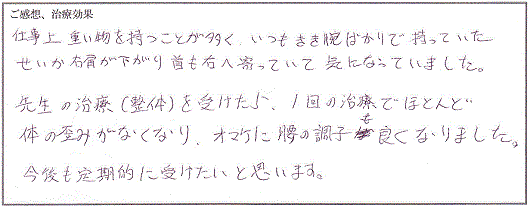 ご感想、治療効果
仕事上重い物を持つことが多く、いつもきき腕ばかりで持っていた
せいか右肩が下がり首も右へ寄っていて気になっていました。
先生の治療(整体)を受けたら、1回の治療でほとんど
体の歪みがなくなり、オマケに腰の調子も良くなりました。
今後も定期的に受けたいと思います。